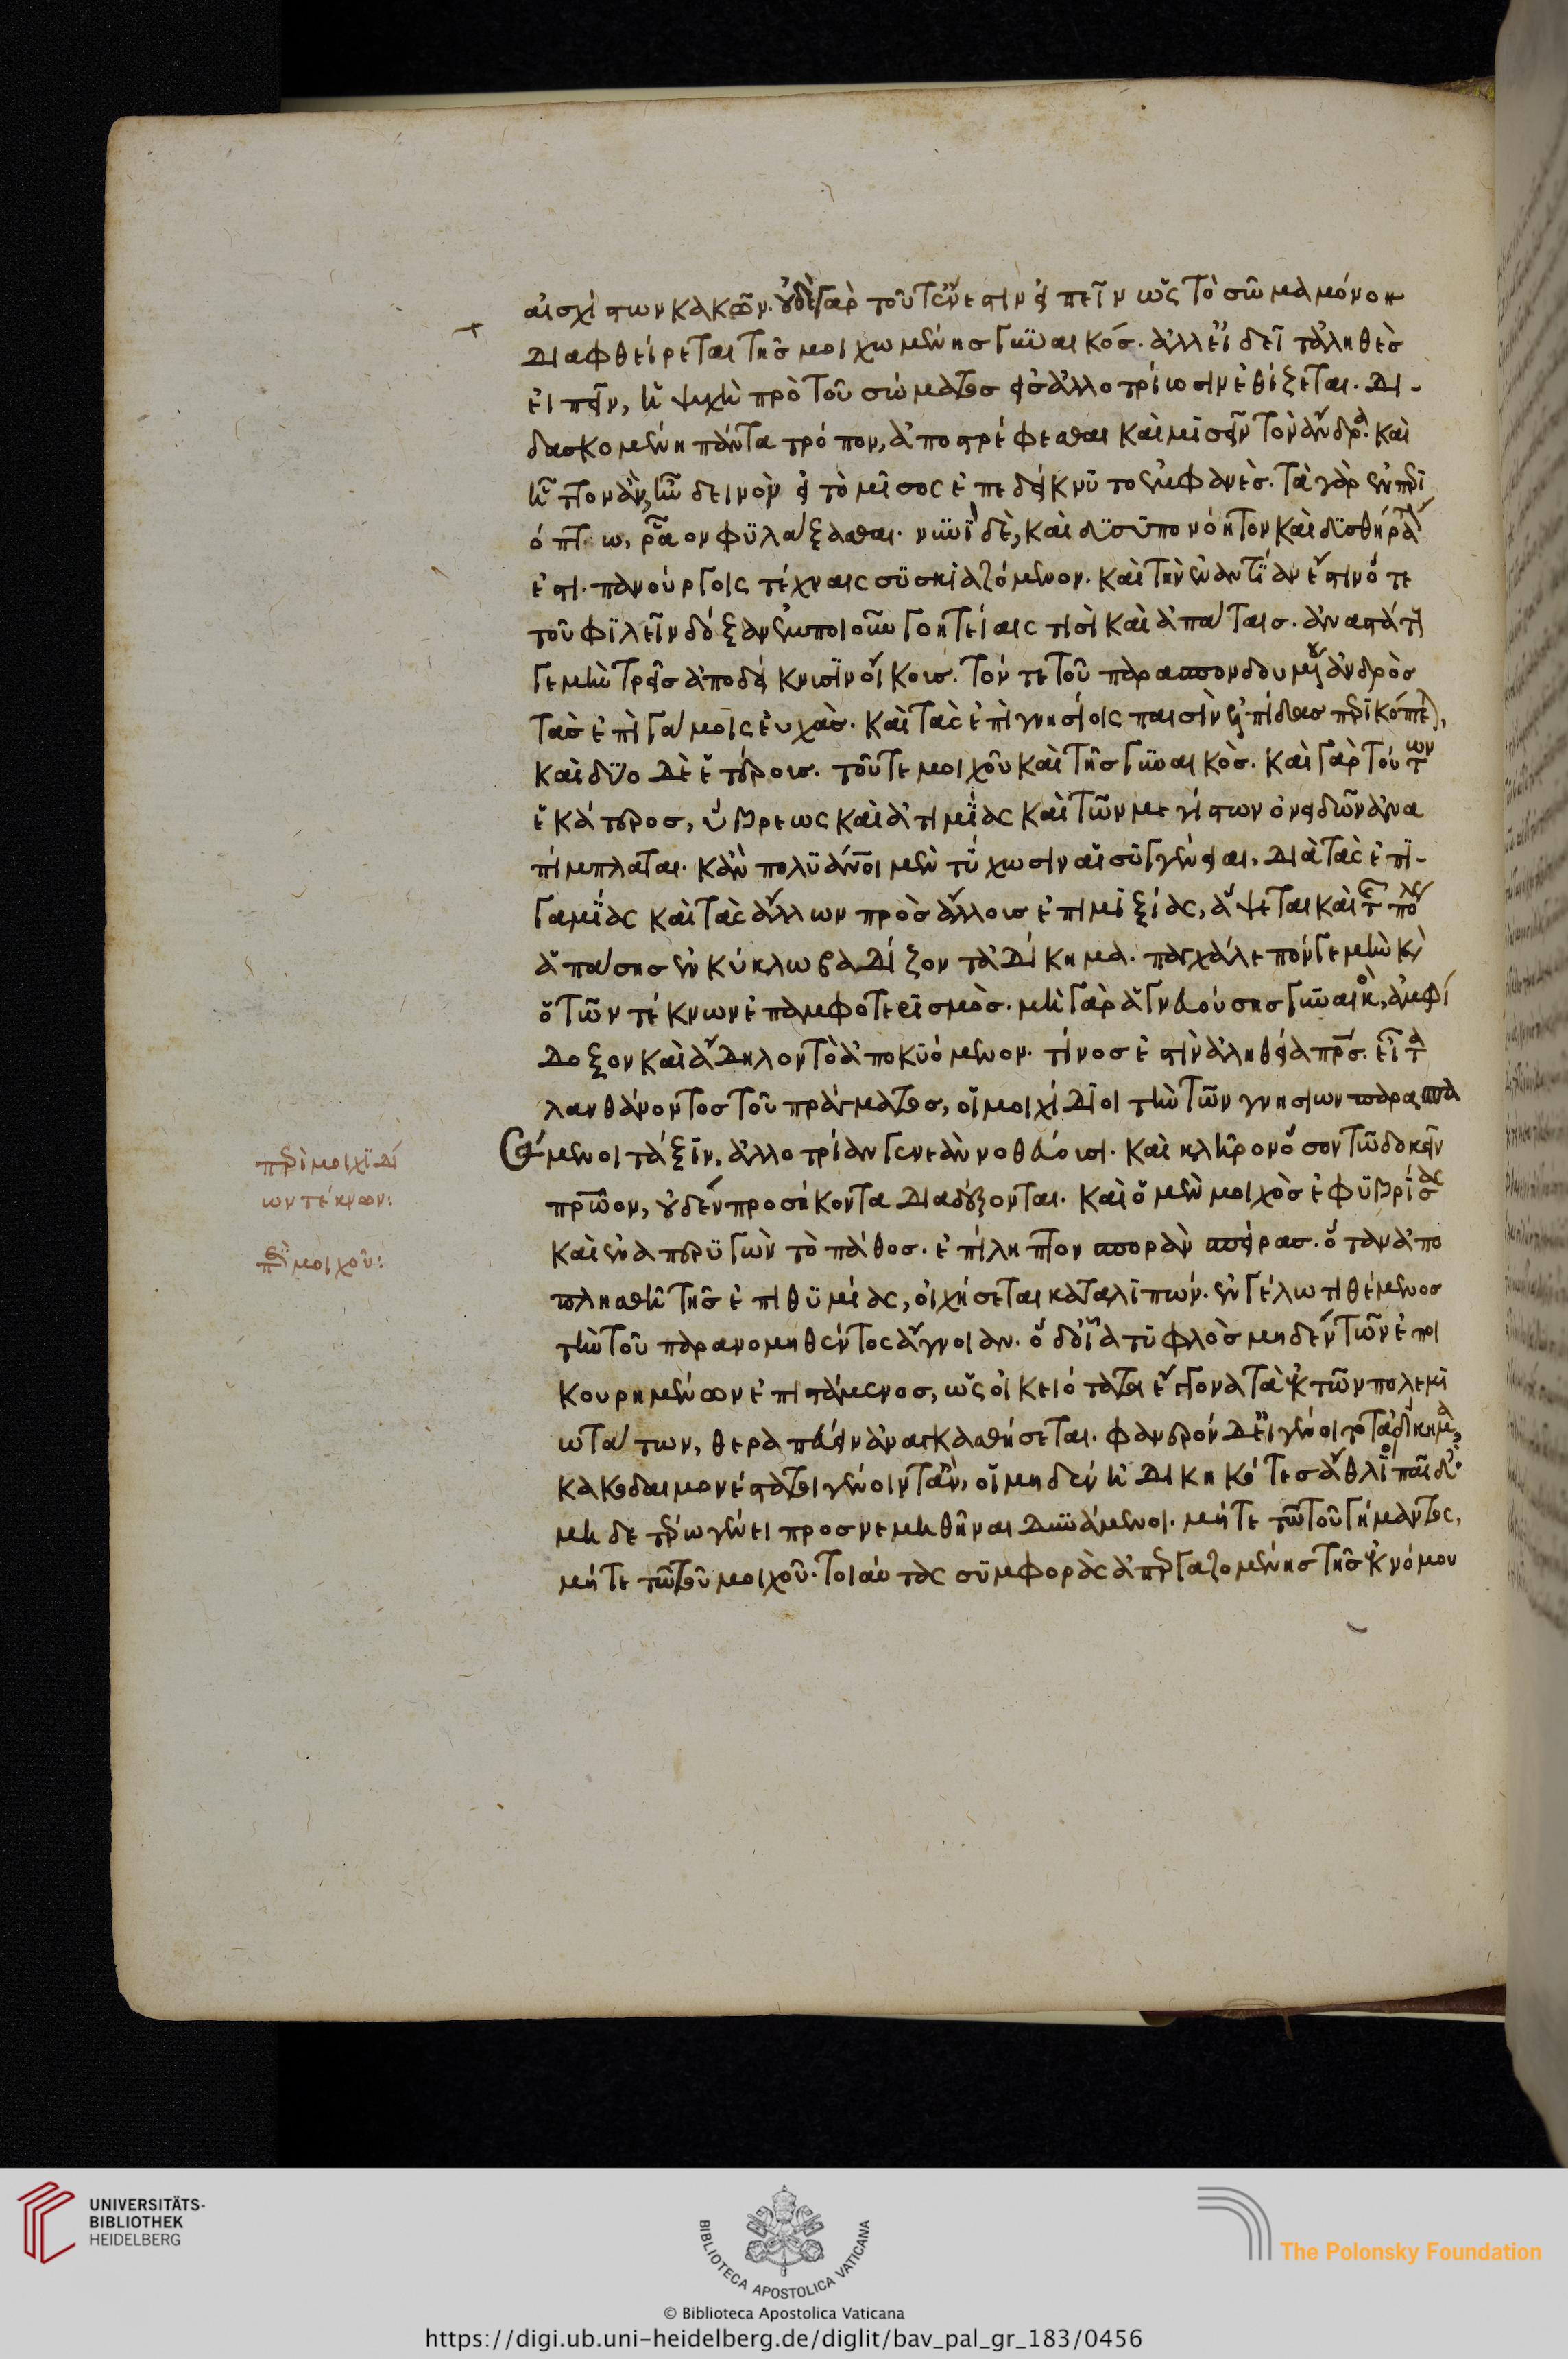 αἰσχίστων κακῶν. οὐδὲ γὰρ τοῦτ' ἔνεστιν εἰπεῖν ὡς τὸ σῶμα μόνον
διαφθείρεται τῆς μοιχωμένης γυναικός. ἀλλ' εἰ δεῖ τἀληθὲς
εἰπεῖν, ἡ ψυχὴ πρὸ τοῦ σώματος εἰς ἀλλοτρίωσιν ἐθίζεται. δι-
δασκομένη πάντα τρόπον, ἀποστρέφεσθαι καὶ μισεῖν τὸν ἄνδρα. καὶ
ἧττον ἂν ἦν δεινὸν εἰ τὸ μῖσος ἐπεδείκνυτο ἐμφανὲς. τὰ γὰρ ἐν περι
όπτω, ρᾶον φυλάξασθαι. νυνὶ δὲ, καὶ δυσυπονόητον καὶ δυσθήρατόν
ἐστι. πανούργοις τέχναις συσκιαζόμενον. καὶ τὴν ἐναντίαν ἔστιν ὅτε
τοῦ φιλεῖν δόξαν ἐμποιοῦν γοητείαις τισὶ καὶ ἀπάταις. ἀναστάτους
γε μὴν τρεῖς ἀποδείκνυσιν οἴκους. τόν τε τοῦ παρασπονδουμένου ἀνδρὸς
τὰς ἐπὶ γάμοις εὐχὰς. καὶ τὰς ἐπὶ γνησίοις παισὶν ἐλπίδας περικόπτει,
καὶ δύο δὲ ἑτέρους. τοῦ τε μοιχοῦ καὶ τῆς γυναικὸς. καὶ γὰρ τούτων
ἑκάτερος, ὕβρεως καὶ ἀτιμίας καὶ τῶν μεγίστων ὀνειδῶν ἀνα
πίμπλαται. κἂν πολυάνθρωποι μὲν τύχωσιν αἱ συγγένειαι, διὰ τὰς ἐπι-
γαμίας καὶ τὰς ἄλλων πρὸς ἄλλους ἐπιμιξίας, ἅψεται καὶ τῆς πόλεως
ἁπάσης ἐν κύκλω βαδίζον τἀδίκημα. παγχάλεπόν γε μὴν καὶ
ὁ τῶν τέκνων ἐπαμφοτερισμὸς. μὴ γὰρ ἁγνευούσης γυναικὸς, ἀμφί
δοξον καὶ ἄδηλον τὸ ἀποκυόμενον. τίνος ἐστὶν ἀληθεία πατρός. εἶτα
λανθάνοντος τοῦ πράγματος, οἱ μοιχίδιοι τὴν τῶν γνησίων παρασπα
σάμενοι τάξιν, ἀλλοτρίαν γενεὰν νοθεύουσι. καὶ κλῆρον ὅσον τῶ δοκεῖν
πατρῶον, οὐδὲν προσήκοντα διαδέξονται. καὶ ὁ μὲν μοιχὸς ἐφυβρίσας
καὶ ἐναπερυγὼν τὸ πάθος. ἐπίληπτον σπορὰν σπείρας. ὅταν ἀπο
πλησθῆ τῆς ἐπιθυμίας, οἰχήσεται καταλιπών. ἐν γέλωτι θέμενος
τὴν τοῦ παρανομηθέντος ἄγνοιαν. ὁ δ' οἷα τυφλὸς μηδὲν τῶν ἐπι
κουρημένων ἐπιστάμενος, ὡς οἰκειότατα ἔκγονα τὰ ἐκ τῶν πολεμι
ωτάτων, θεραπεύειν ἀναγκασθήσεται. φανερὸν δὲ εἰ γένοιτο τἀδίκημα,
κακοδαιμονέστατοι γένοιντ' ἂν, οἱ μηδὲν ἠδικηκότες ἄθλιοι παῖδες.
μηδετέρω γένει προσνεμηθῆναι δυνάμενοι. μήτε τῶ τοῦ γήμαντος,
μήτε τῶ τοῦ μοιχοῦ. τοιαύτας συμφορὰς ἀπεργαζομένης τῆς ἐκνόμου
περὶ μοιχιδί
ων τέκνων:
περὶ μοιχοῦ:
UNIVERSITÄTS-
BIBLIOTHEK
HEIDELBERG
BIBLIOTECA APOSTOLICA VATICANA
The Polonsky Foundation
© Biblioteca Apostolica Vaticana
https://digi.ub.uni-heidelberg.de/diglit/bav_pal_gr_183/0456